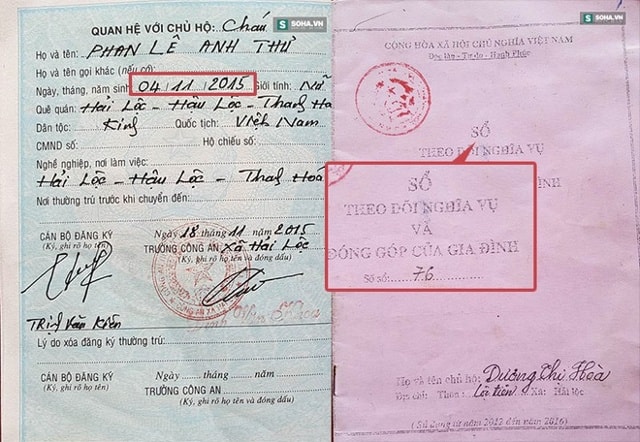 QUAN HỆ VỚI CHỦ HỘ: Cháu
Họ và tên: PHAN LÊ ANH THƯ
Họ và tên gọi khác (nếu có):
Ngày, tháng, năm sinh: 04 / 11 / 2015 Giới tính: Nữ
Quê quán: Hải Lộc - Hậu Lộc - Thanh Hó
Dân tộc: Kinh Quốc tịch: Việt Nam
CMND số: Hộ chiếu số:
Nghề nghiệp, nơi làm việc:
Hải Lộc - Hậu Lộc - Thanh Hoá
Nơi thường trú trước khi chuyển đến:
Ngày 18 tháng 11 năm 2015
CÁN BỘ ĐĂNG KÝ TRƯỞNG CÔNG AN Xã Hải Lộc
(Ký, ghi rõ họ tên) (Ký, ghi rõ họ tên và đóng dấu)
Trịnh Văn Kiên
Lý do xóa đăng ký thường trú:
Ngày tháng năm
CÁN BỘ ĐĂNG KÝ TRƯỞNG CÔNG AN
(Ký, ghi rõ họ tên) (Ký, ghi rõ họ tên và đóng dấu)
SOHA.VN
SOHA.VN
CỘNG HÒA XÃ HỘI CHỦ NGHĨA VIỆT NAM
Độc lập - Tự do - Hạnh Phúc
SỔ
THEO DÕI NGHĨA VỤ
ĐÌNH
SỔ
THEO DÕI NGHĨA VỤ
VÀ
ĐÓNG GÓP CỦA GIA ĐÌNH
Số sổ: 76
Họ và tên chủ hộ: Dương Chi Hoà
Địa chỉ: Thôn: Lộc Tiên Xã: Hải lộc
(Sử dụng từ 2012 đến 2016)